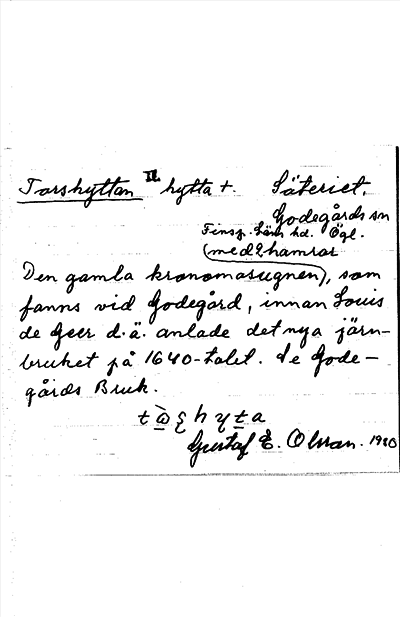 Torshyttan II. hytta +. Säteriet,
Godegårds sn
Finsp. läns hd. Ögl.
(med 2 hamrar
Den gamla kronomasugnen), som
fanns vid Godegård, innan Louis
de Geer d.ä. anlade det nya järn-
bruket på 1640-talet. Se Gode-
gårds Bruk.
Gustaf E. Olsson. 1980